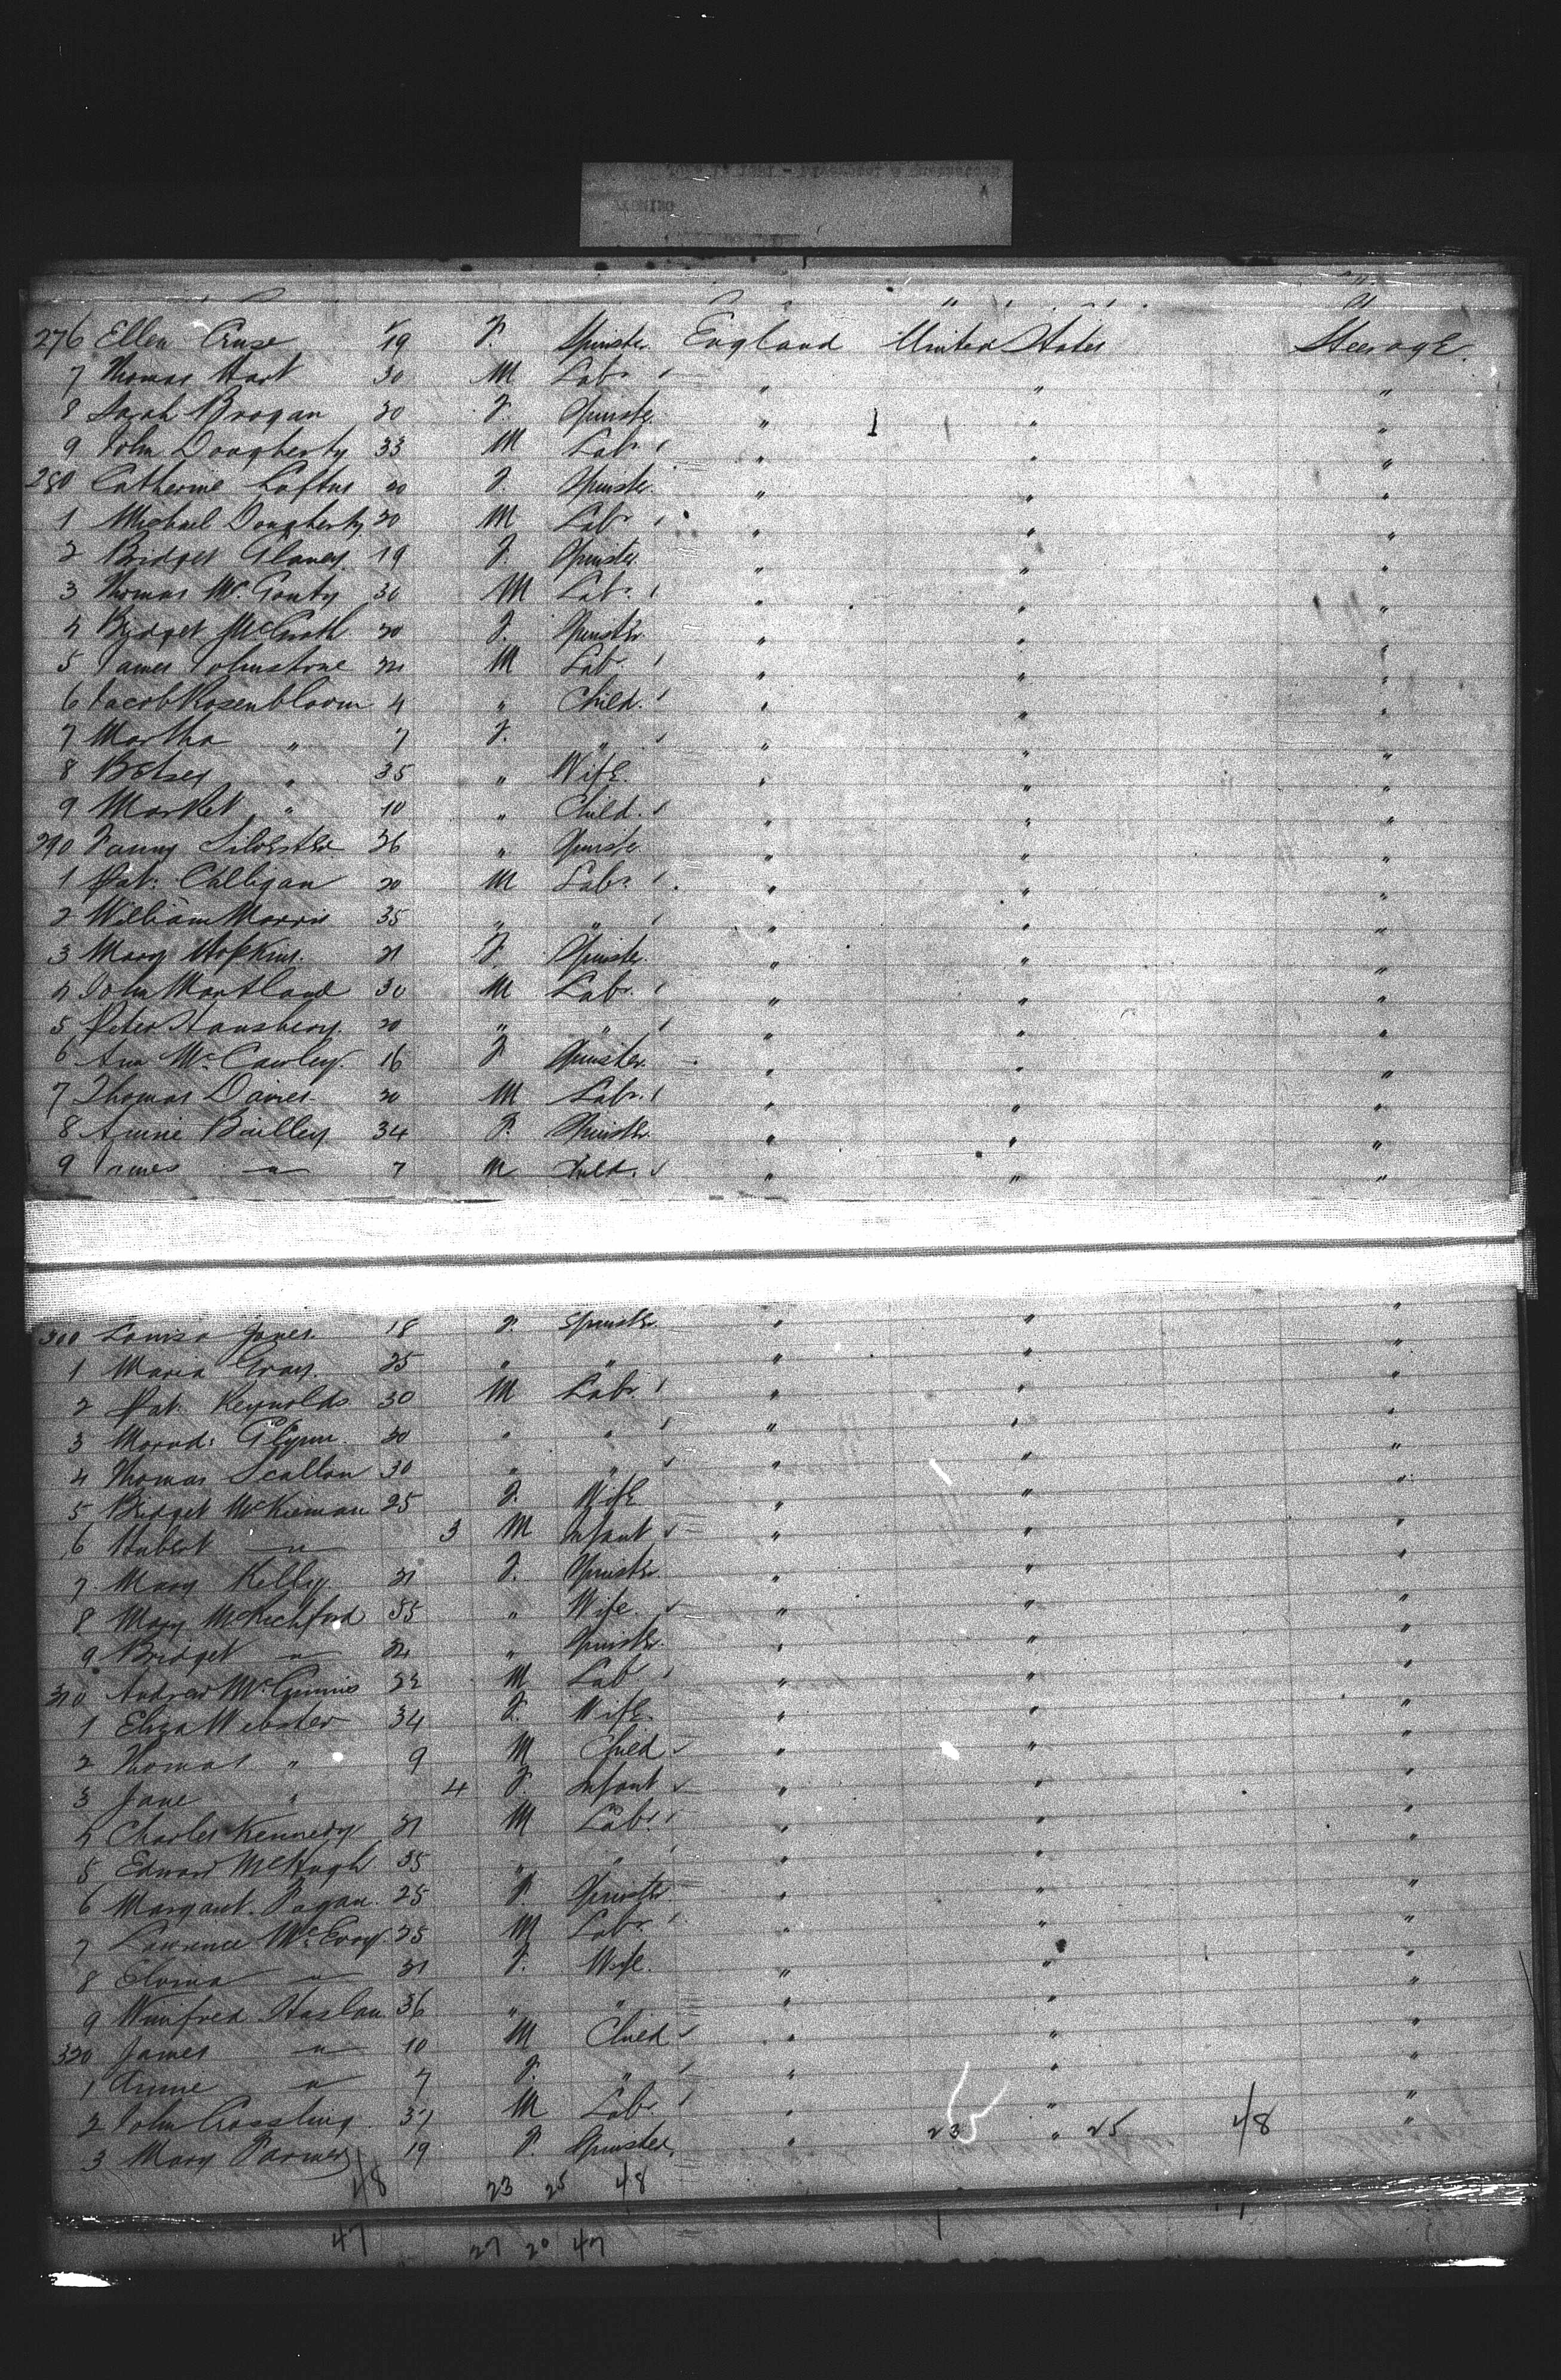 276 Ellen Cruse 19 F. Spinster England United States Steerage.
7 Thomas Hart 30 M Labr. " " "
8 Sarah Brogan 20 F. Spinster " " "
9 John Dougherty 33 M Labr. " " "
280 Catherine Loftus 20 F. Spinster. " " "
1 Michael Dougherty 20 M Labr. " " "
2 Bridget 19 F. Spinster " " "
3 Thomas Mc. 30 M Labr. " " "
4 Bridget McGrath 20 F. Spinster. " " "
5 James Johnstone M Labr. " " "
6 Jacob Rosenbloom 4 " Child. " " "
7 Martha " 7 F. " " " "
8 Betsey " 35 " Wife. " " "
9 Market " 10 " Child. " " "
290 Fanny Silvester 36 " Spinster " " "
1 Pat. Calligan 20 M Labr. " " "
2 William Morris 35 " " " " "
3 Mary Hopkins. 21 F. Spinster. " " "
4 John Mortland 30 M Labr. " " "
5 Peter Hansberry. 20 " " " " "
6 Ann Mc. Cawley. 16 F Spinster. " " "
7 Thomas Davies 20 M Labr. " " "
8 Annie Bailley 34 F. Spinster. " " "
9 James " 7 M Child. " " "
300 Louisa Jones. 18 F. Spinster. " " "
1 Maria Gray. 25 " " " " "
2 Pat. Reynolds 30 M Labr. " " "
3 Glynn. 20 " " " " "
4 Thomas Scallon 30 " " " " "
5 Bridget McKiernan 25 F. Wife " " "
6 Hubert " 3 M Infant " " "
7 Mary Kelly 21 F. Spinster " " "
8 Mary McRichford 55 " Wife. " " "
9 Bridget " " Spinster. " " "
310 Andrew Mc.Ginnis 22 M Lab " " "
1 Eliza Webster 34 F. Wife " " "
2 Thomas " 9 M Child " " "
3 Jane " 4 F. Infant " " "
4 Charles Kennedy 21 M Labr. " " "
5 Edward McHugh 35 " " " " "
6 Margaret Fagan. 25 F. Spinster " " "
7 Lawrence Mc.Evoy. 25 M Labr. " " "
8 " 21 F. Wife. " " "
9 Winifred 36 " " " " "
320 James " 10 M Child " " "
1 Annie " 7 F. " " " "
2 John Crossling M Labr. " " "
3 Mary Farmer 19 F Spinster. " 23 " 25 48 "
48 23 25 48
47 27 20 47